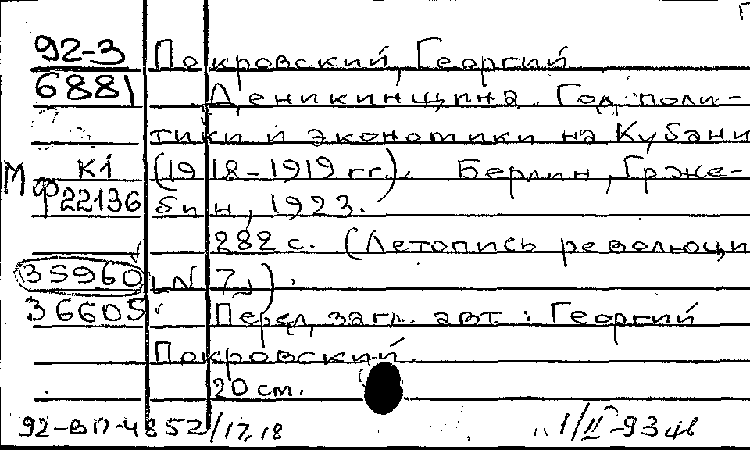 92-3 Покровский, Георгий
6881 Деникинщина. Год поли-
тики и экономики на Кубани
К1 (1918-1919 гг.). Берлин, Грже-
Мф 22136 бин, 1923.
282 с. (Летопись революци
35960 [N 7])
36605 Перед загл. авт.: Георгий
Покровский.
20 см.
92-ВП-4852/17,18 1/II-93